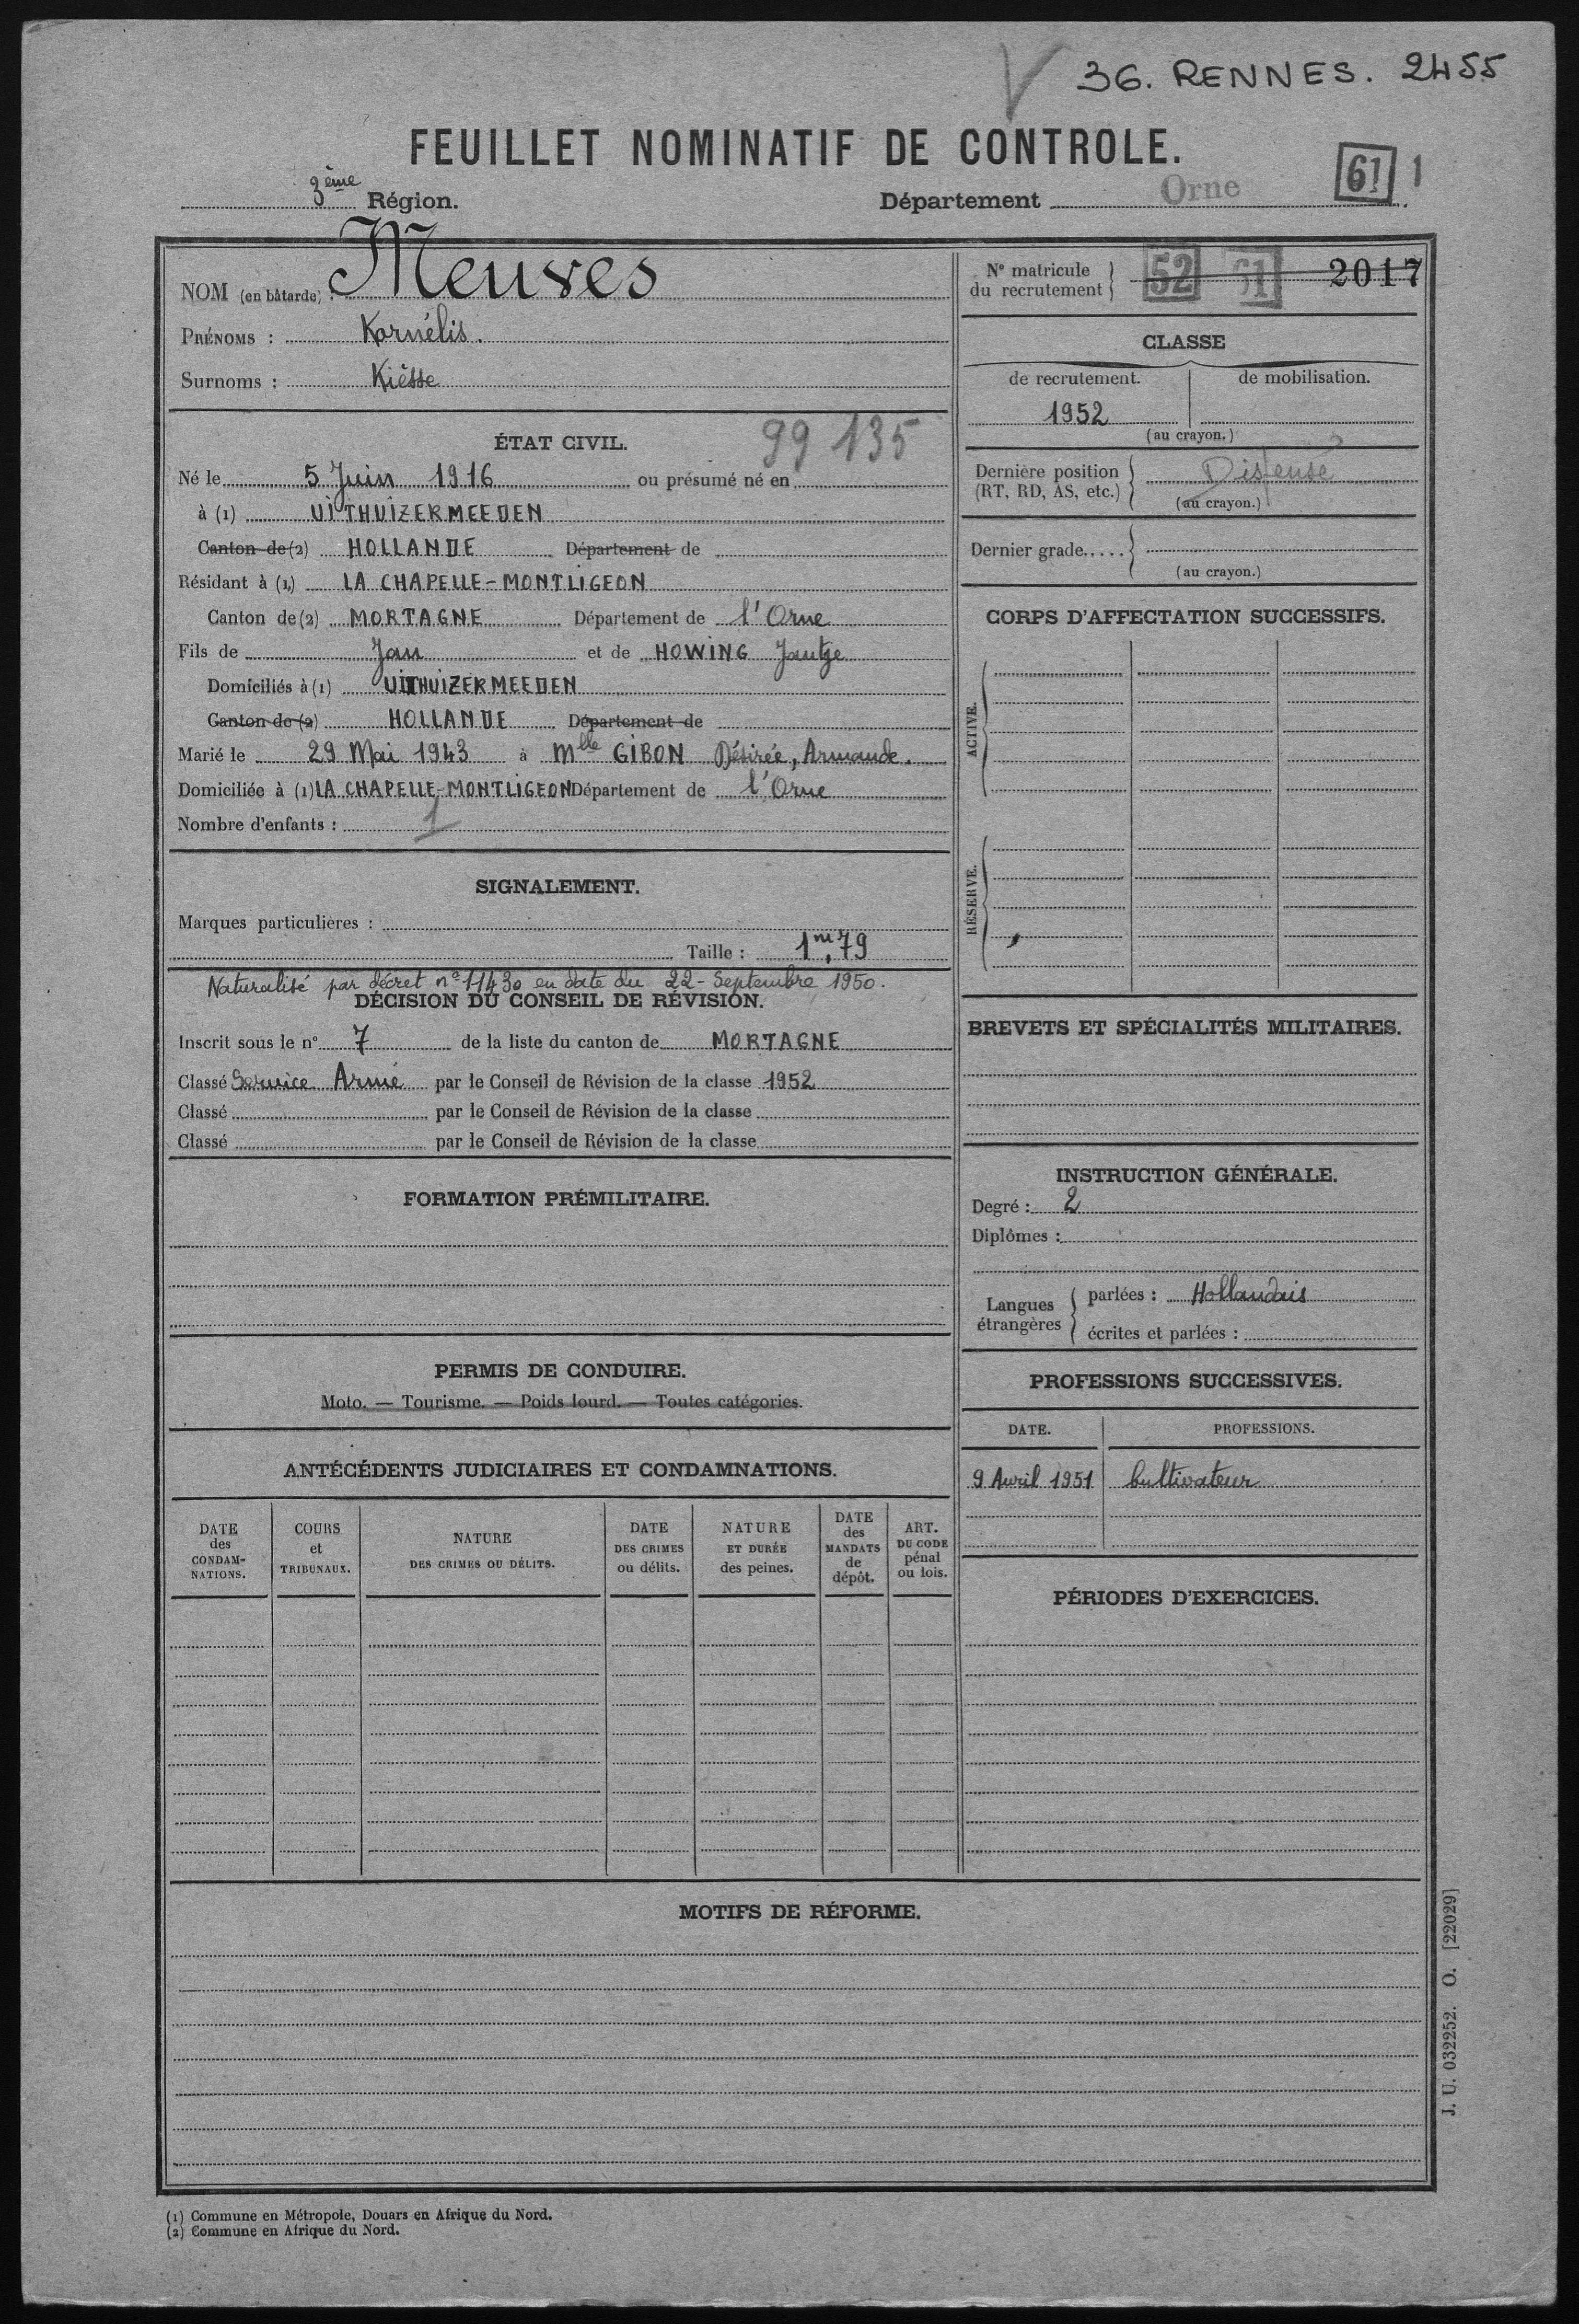 36. RENNES. 2455
FEUILLET NOMINATIF DE CONTROLE.
3ème Région.
Département Orne 61 1
NOM (en bâtarde) : Meuves
PRÉNOMS : Kornélis.
Surnoms : Kiésse
ÉTAT CIVIL. 99 135
Né le 5 Juin 1916 ou présumé né en
à (1) UITHUIZERMEEDEN
Canton de (2) HOLLANDE Département de
Résidant à (1) LA CHAPELLE-MONTLIGEON
Canton de (2) MORTAGNE Département de l'Orne
Fils de Jan et de HOWING Jantje
Domiciliés à (1) UITHUIZERMEEDEN
Canton de (2) HOLLANDE Département de
Marié le 29 Mai 1943 à Mlle GIBON Désirée, Armande.
Domiciliée à (1) LA CHAPELLE-MONTLIGEON Département de l'Orne
Nombre d'enfants : 1
SIGNALEMENT.
Marques particulières :
Taille : 1m,79
Naturalisé par décret n° 11430 en date du 22 - Septembre 1950.
DÉCISION DU CONSEIL DE RÉVISION.
Inscrit sous le n° 7 de la liste du canton de MORTAGNE
Classé Service Armé par le Conseil de Révision de la classe 1952
Classé par le Conseil de Révision de la classe
Classé par le Conseil de Révision de la classe
FORMATION PRÉMILITAIRE.
PERMIS DE CONDUIRE.
Moto. — Tourisme. — Poids lourd. — Toutes catégories.
ANTÉCÉDENTS JUDICIAIRES ET CONDAMNATIONS.
DATE des CONDAM-NATIONS.
COURS et TRIBUNAUX.
NATURE DES CRIMES OU DÉLITS.
DATE DES CRIMES ou délits.
NATURE ET DURÉE des peines.
DATE des MANDATS de dépôt.
ART. DU CODE pénal ou lois.
N° matricule du recrutement 52 61 2017
CLASSE
de recrutement. de mobilisation.
1952
(au crayon.)
Dernière position (RT, RD, AS, etc.) Dispensé
(au crayon.)
Dernier grade.....
(au crayon.)
CORPS D'AFFECTATION SUCCESSIFS.
ACTIVE.
RÉSERVE.
BREVETS ET SPÉCIALITÉS MILITAIRES.
INSTRUCTION GÉNÉRALE.
Degré : 2
Diplômes :
Langues étrangères
parlées : Hollandais
écrites et parlées :
PROFESSIONS SUCCESSIVES.
DATE. PROFESSIONS.
9 Avril 1951 Cultivateur
PÉRIODES D'EXERCICES.
MOTIFS DE RÉFORME.
J. U. 032252. O. [22029]
(1) Commune en Métropole, Douars en Afrique du Nord.
(2) Commune en Afrique du Nord.